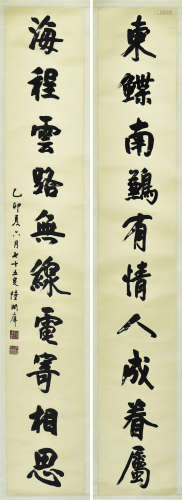 東鰈南鶼有情人成眷屬
海程雲路無線電寄相思
乙卯夏六月七十五叟陸